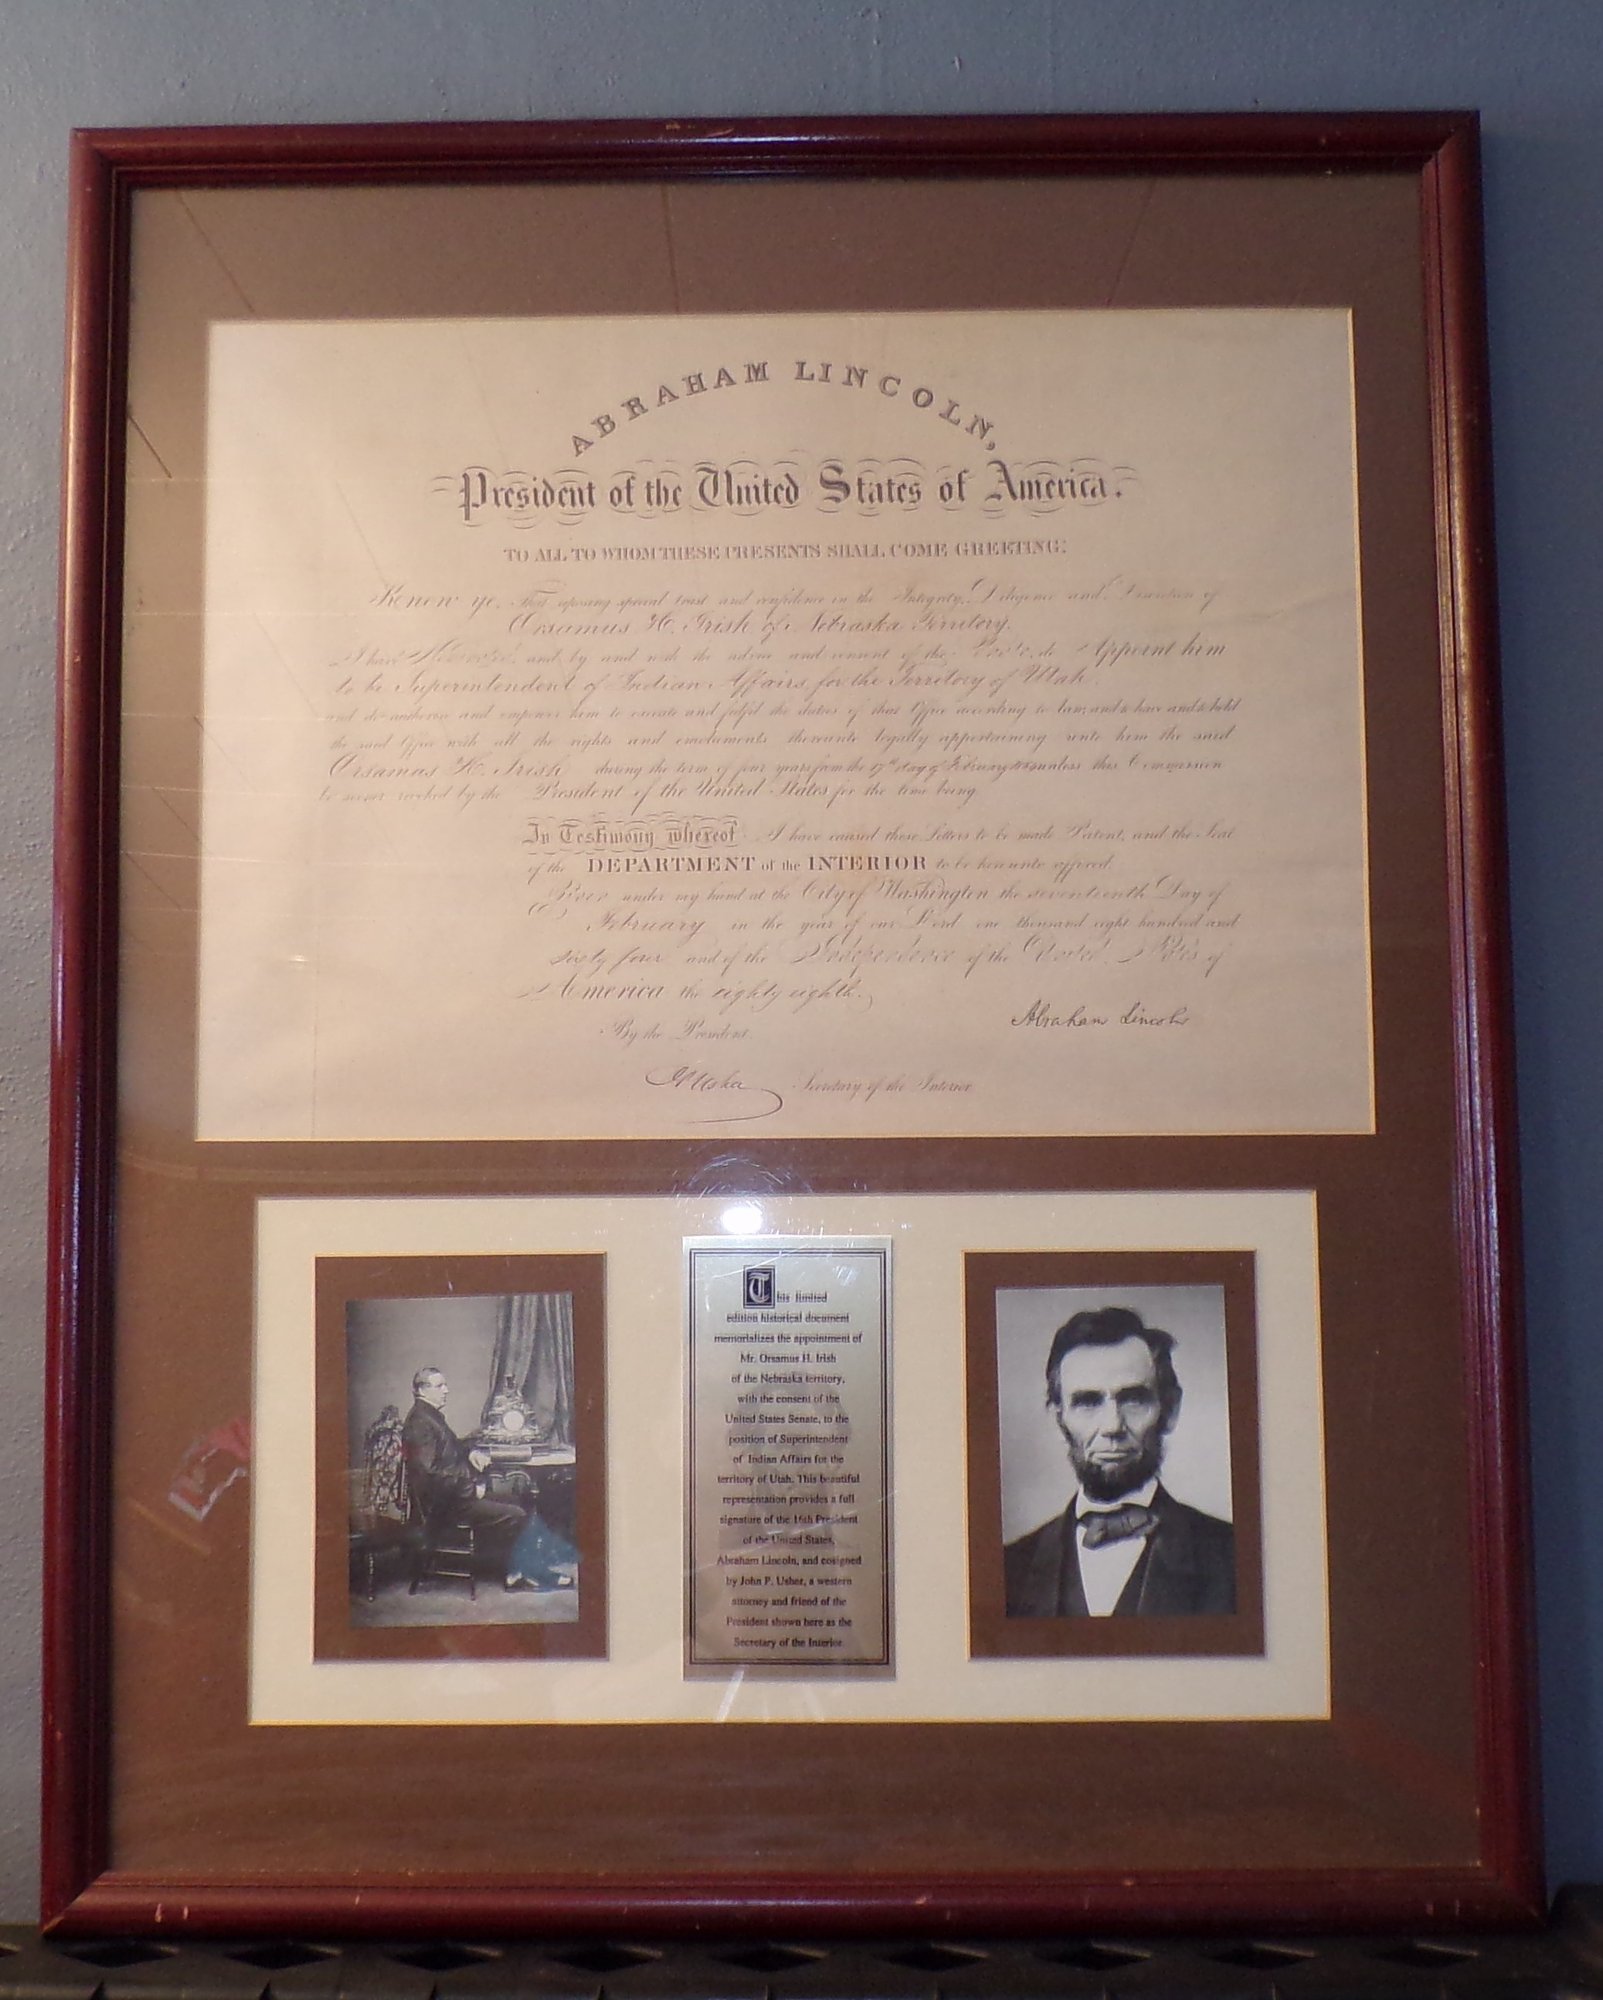 ABRAHAM LINCOLN,
President of the United States of America.
TO ALL TO WHOM THESE PRESENTS SHALL COME GREETING:
Know ye, That reposing special trust and confidence in the Integrity, Diligence and Discretion of
Orsamus H. Irish of Nebraska Territory.
I have Nominated, and, by and with the advice and consent of the Senate, do Appoint him
to be Superintendent of Indian Affairs, for the Territory of Utah.
and do authorize and empower him to execute and fulfil the duties of that Office according to law; and to have and to hold
the said Office with all the rights and emoluments thereunto legally appertaining unto him the said
Orsamus H. Irish during the term of four years from the 17th day of February unless this Commission
be sooner revoked by the President of the United States for the time being.
In Testimony whereof I have caused these Letters to be made Patent, and the Seal
of the DEPARTMENT of the INTERIOR to be hereunto affixed.
Given under my hand at the City of Washington the seventeenth Day of
February in the year of our Lord one thousand eight hundred and
sixty four and of the Independence of the United States of
America the eighty eighth.
Abraham Lincoln
By the President
JP Usher Secretary of the Interior
This limited
edition historical document
memorializes the appointment of
Mr. Orsamus H. Irish
of the Nebraska territory,
with the consent of the
United States Senate, to the
position of Superintendent
of Indian Affairs for the
territory of Utah. This beautiful
representation provides a full
signature of the 16th President
of the United States,
Abraham Lincoln, and cosigned
by John P. Usher, a western
attorney and friend of the
President shown here as the
Secretary of the Interior